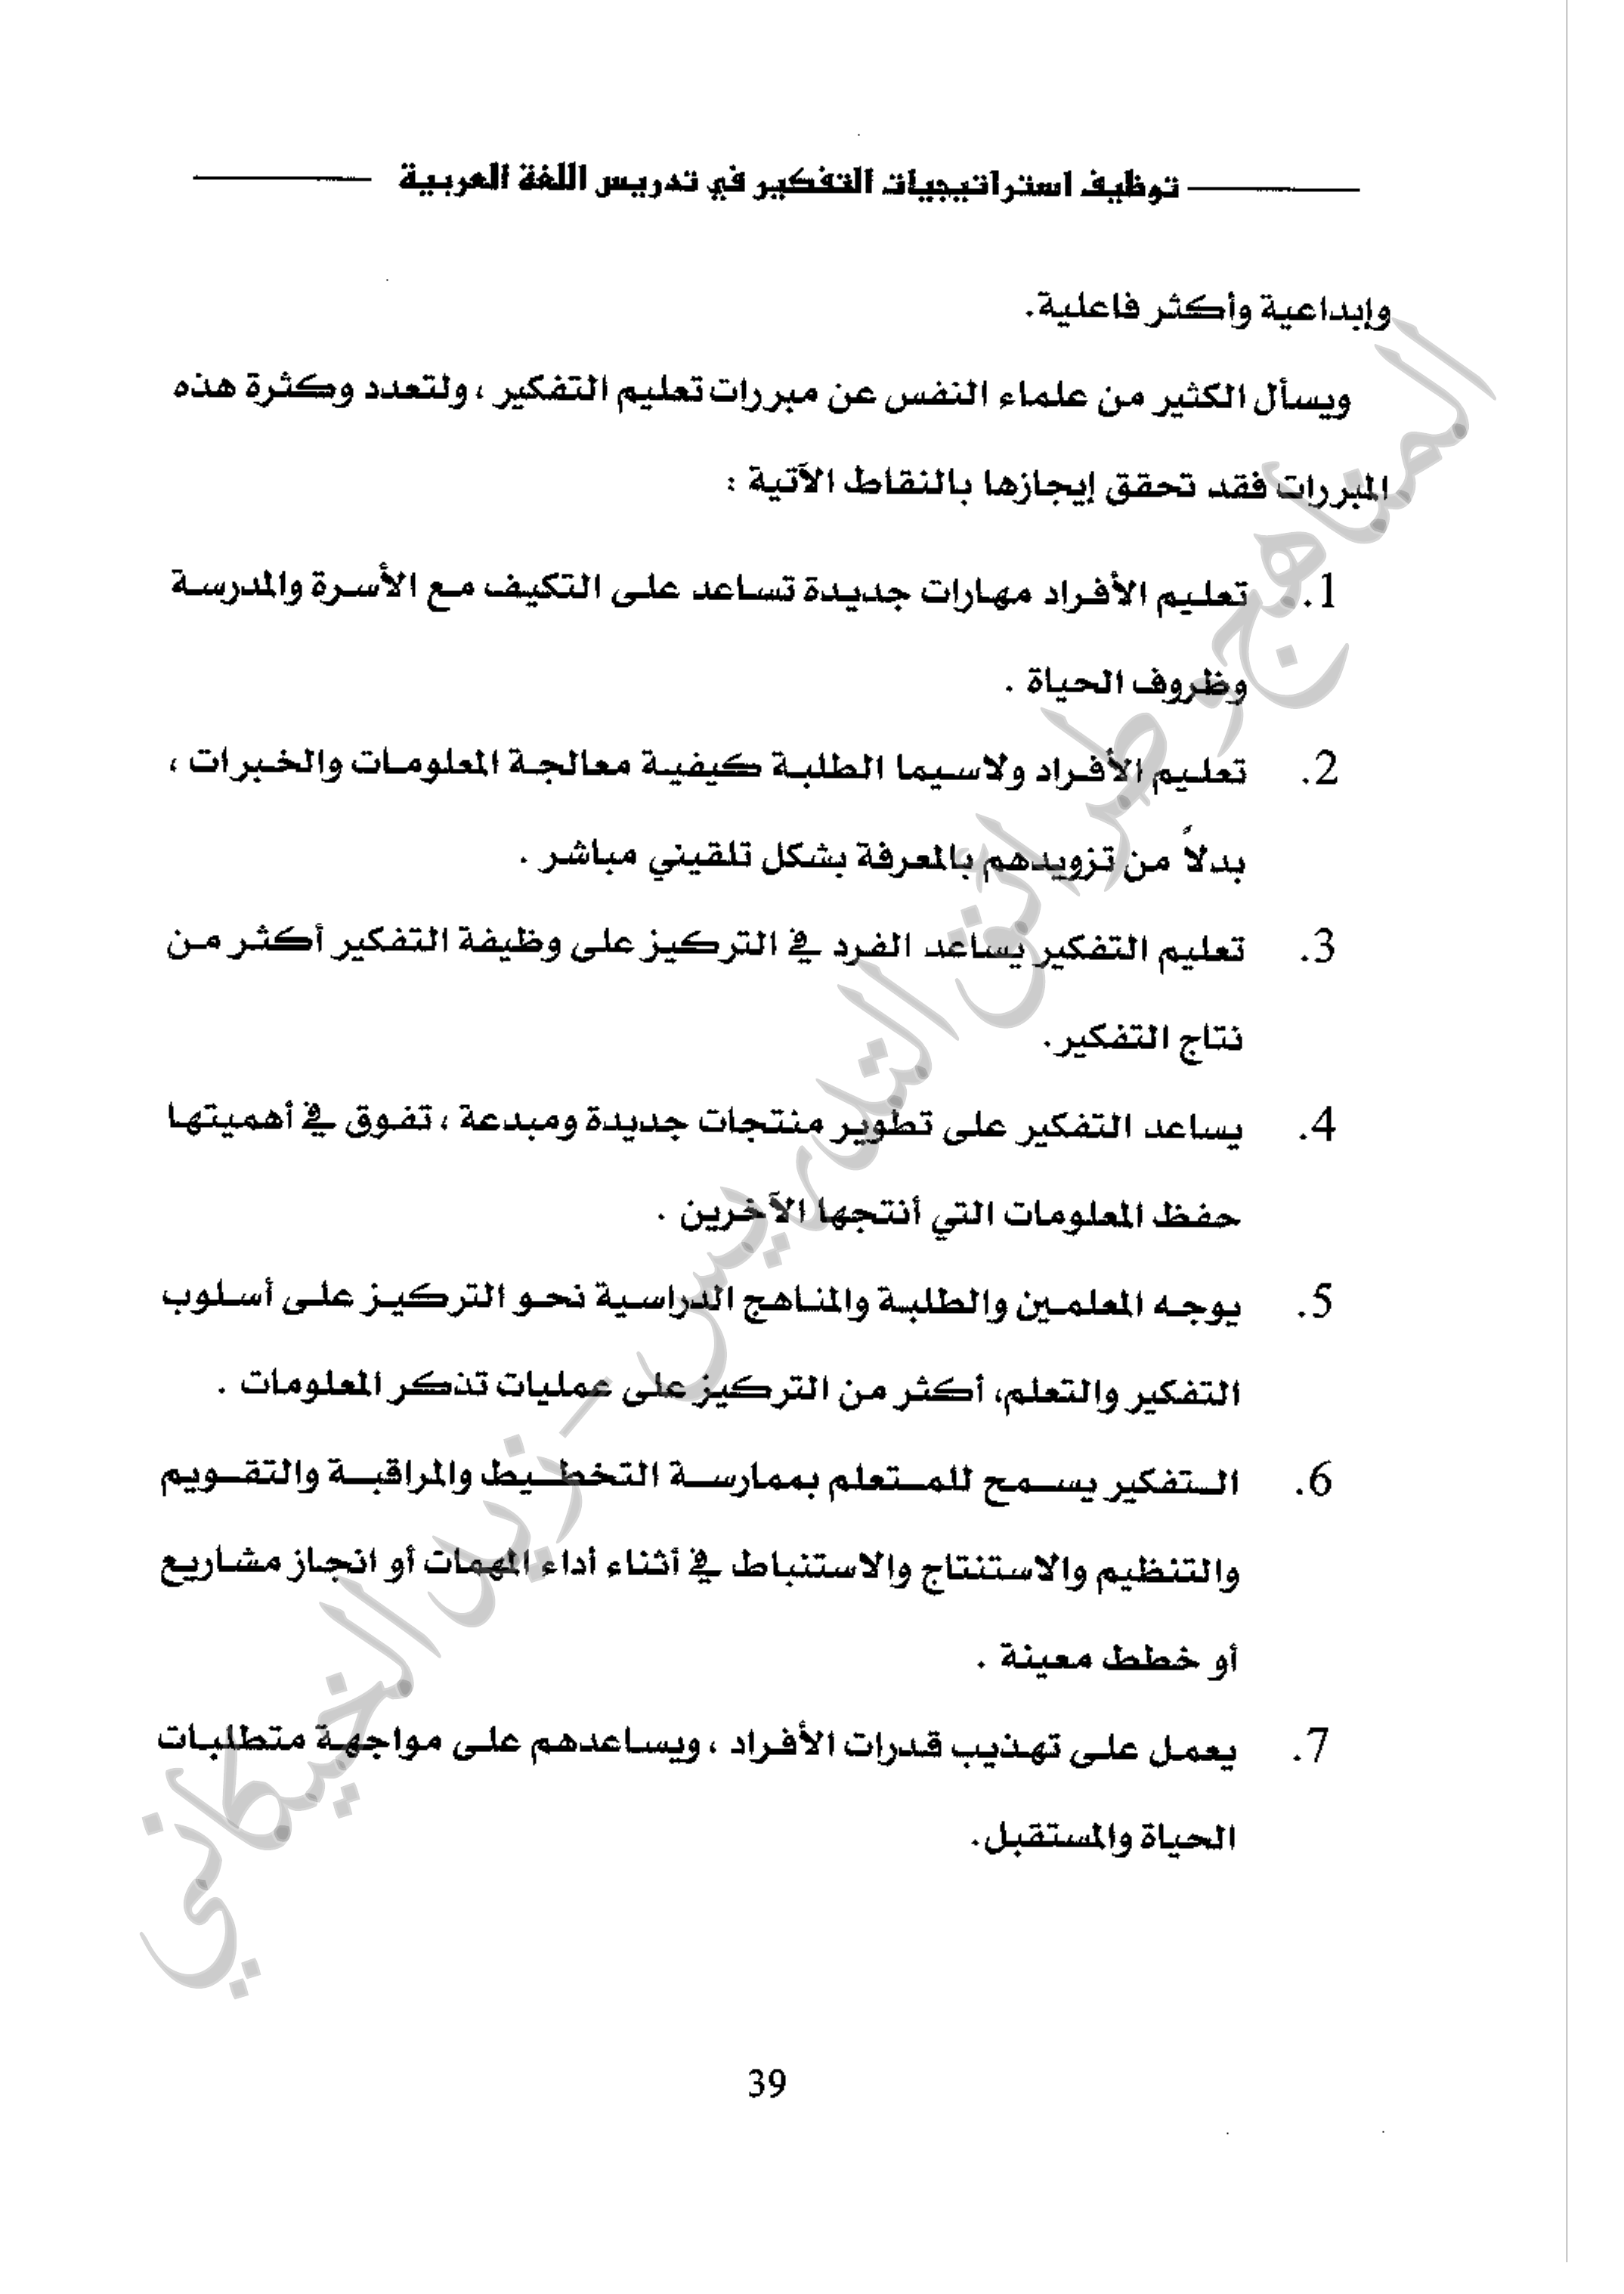 توظيف استراتيجيات التفكير في تدريس اللغة العربية
وإبداعية وأكثر فاعلية.
ويسأل الكثير من علماء النفس عن مبررات تعليم التفكير ، ولتعدد وكثرة هذه
المبررات فقد تحقق إيجازها بالنقاط الآتية :
1. تعليم الأفراد مهارات جديدة تساعد على التكيف مع الأسرة والمدرسة
وظروف الحياة .
2. تعليم الأفراد ولاسيما الطلبة كيفية معالجة المعلومات والخبرات ،
بدلاً من تزويدهم بالمعرفة بشكل تلقيني مباشر .
3. تعليم التفكير يساعد الفرد في التركيز على وظيفة التفكير أكثر من
نتاج التفكير.
4. يساعد التفكير على تطوير منتجات جديدة ومبدعة ، تفوق في أهميتها
حفظ المعلومات التي أنتجها الآخرين .
5. يوجه المعلمين والطلبة والمناهج الدراسية نحو التركيز على أسلوب
التفكير والتعلم، أكثر من التركيز على عمليات تذكر المعلومات .
6. التفكير يسمح للمتعلم بممارسة التخطيط والمراقبة والتقويم
والتنظيم والاستنتاج والاستنباط في أثناء أداء المهمات أو انجاز مشاريع
أو خطط معينة .
7. يعمل على تهذيب قدرات الأفراد ، ويساعدهم على مواجهة متطلبات
الحياة والمستقبل.
39
المناهج وطرائق التدريس - زيد الخيكاني